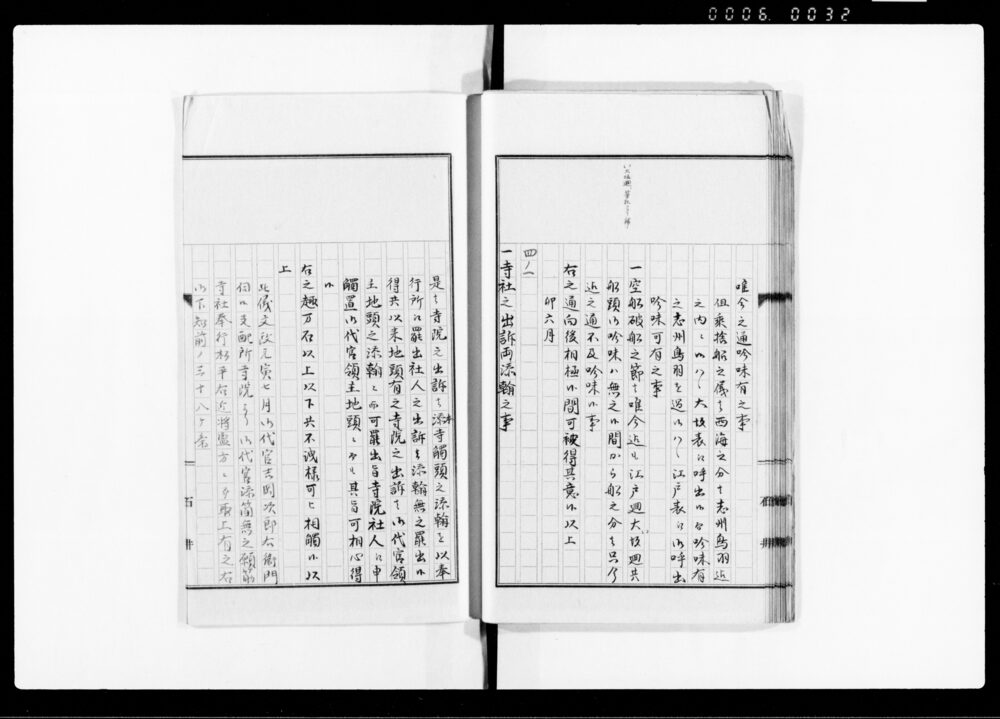 0006 0032
唯今之通吟味有之事
但乗捨船之儀も西海之分十志州鳥羽近
之内ニ候ハヽ大坂表江呼出候而吟味有
之志州鳥羽を過候ハヽ江戸表江御呼出
吟味可有之事
一空船破船之節も唯今迄も江戸廻大坂廻共
船頭御吟味ハ無之候間から船之分も只今
迄之通不及吟味候事
右之通向後相極候間可被得其意候以上
卯六月
四ノ一
一寺社之出訴両添翰之事
是者寺院之出訴者本寺觸頭之添翰を以奉
行所江罷出社人之出訴者添翰無之罷出候
得共以来地頭有之寺院之出訴者御代官領
主地頭之添翰ニ而可罷出旨寺院社人江申
觸置御代官領主地頭ニ而も其旨可相心得
候
右之趣万石以上以下共不洩様可被相觸候以
上
此儀文政元寅七月御代官吉岡次郎右衛門
伺候支配所寺院より御代官添簡無之願筋
寺社奉行松平右近将監方ニ而取上有之右
御下知前ノ三十八ケ条
石
井